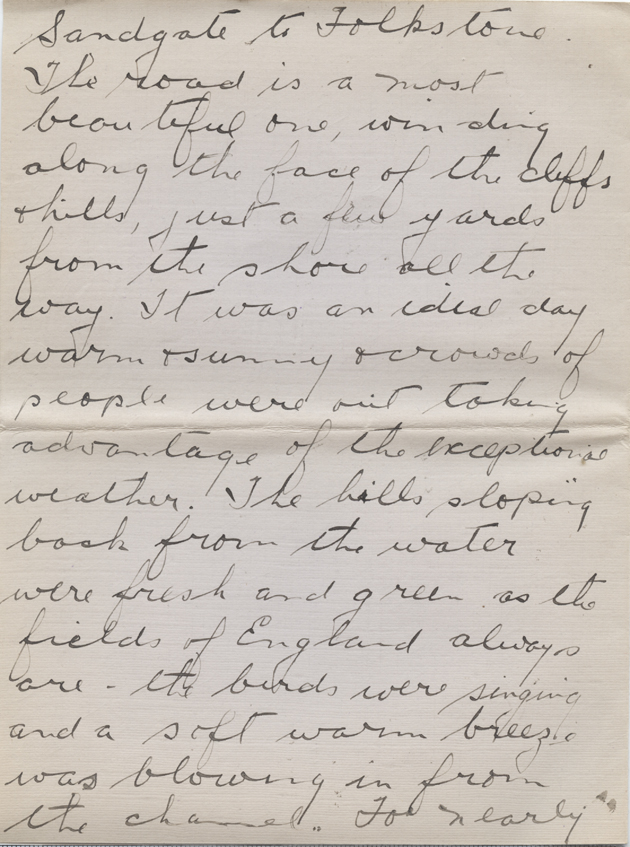 Sandgate to Folkstone.
The road is a most
beautiful one, winding
along the face of the cliffs
& hills, just a few yards
from the shore all the
way. It was an ideal day
warm & sunny & crowds of
people were out taking
advantage of the exceptional
weather. The hills sloping
back from the water
were fresh and green as the
fields of England always
are - the birds were singing
and a soft warm breeze
was blowing in from
the channel. For nearly